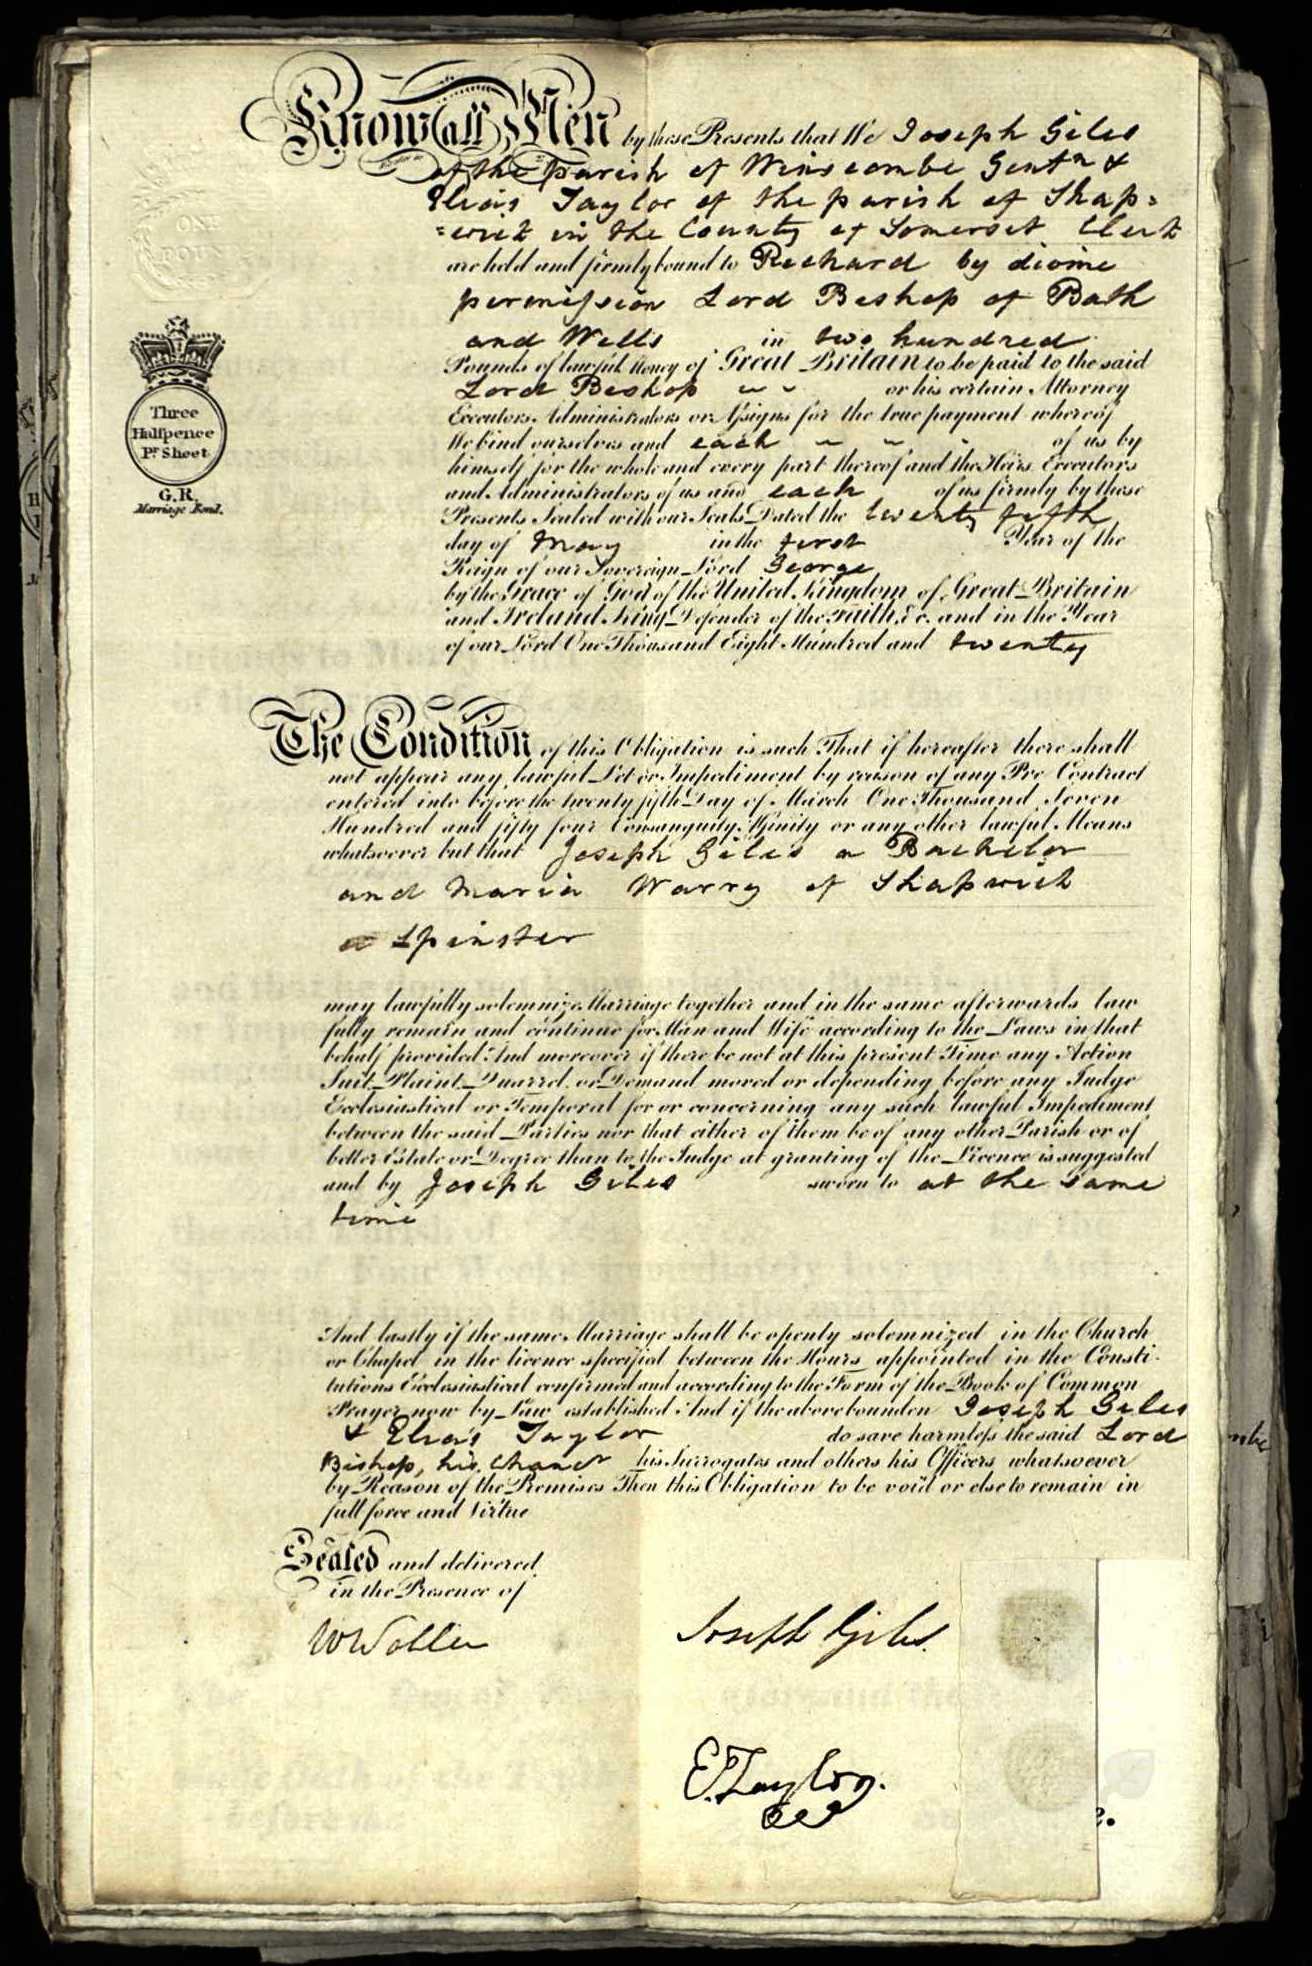 Know all Men by these Presents that We Joseph Giles
of the parish of Winscombe Gentn &
Elias Taylor of the parish of Shap=
=wick in the County of Somerset Clerk
are held and firmly bound to Richard by divine
permission Lord Bishop of Bath
and Wells in two hundred
Pounds of lawful Money of Great Britain to be paid to the said
Lord Bishop or his certain Attorney
Executors Administrators or Assigns for the true payment whereof
We bind ourselves and each of us by
himself for the whole and every part thereof and the Heirs Executors
and Administrators of us and each of us firmly by these
Presents Sealed with our Seals Dated the twenty fifth
day of May in the first Year of the
Reign of our Sovereign Lord George
by the Grace of God of the United Kingdom of Great Britain
and Ireland King Defender of the Faith &c. and in the Year
of our Lord One Thousand Eight Hundred and twenty
ONE
POU
Three
Halfpence
Pr. Sheet
G.R.
Marriage Bond.
The Condition of this Obligation is such That if hereafter there shall
not appear any lawful Let or Impediment by reason of any Pre Contract
entered into before the twenty fifth Day of March One Thousand Seven
Hundred and fifty four Consanguity Affinity or any other lawful Means
whatsoever but that Joseph Giles a Bachelor
and Maria Warry of Shapwick
a Spinster
may lawfully solemnize Marriage together and in the same afterwards law
fully remain and continue for Man and Wife according to the Laws in that
behalf provided And moreover if there be not at this present Time any Action
Suit Plaint Quarrel or Demand moved or depending before any Judge
Ecclesiastical or Temporal for or concerning any such lawful Impediment
between the said Parties nor that either of them be of any other Parish or of
better Estate or Degree than to the Judge at granting of the Licence is suggested
and by Joseph Giles sworn to at the same
time
And lastly if the same Marriage shall be openly solemnized in the Church
or Chapel in the licence specified between the Hours appointed in the Consti-
tutions Ecclesiastical confirmed and according to the Form of the Book of Common
Prayer now by Law established And if the above bounden Joseph Giles
& Elias Taylor do save harmless the said Lord
Bishop, his Chancr his Surrogates and others his Officers whatsoever
by Reason of the Premises Then this Obligation to be void or else to remain in
full force and Virtue
Sealed and delivered
in the Presence of
Joseph Giles.
E. Taylor.